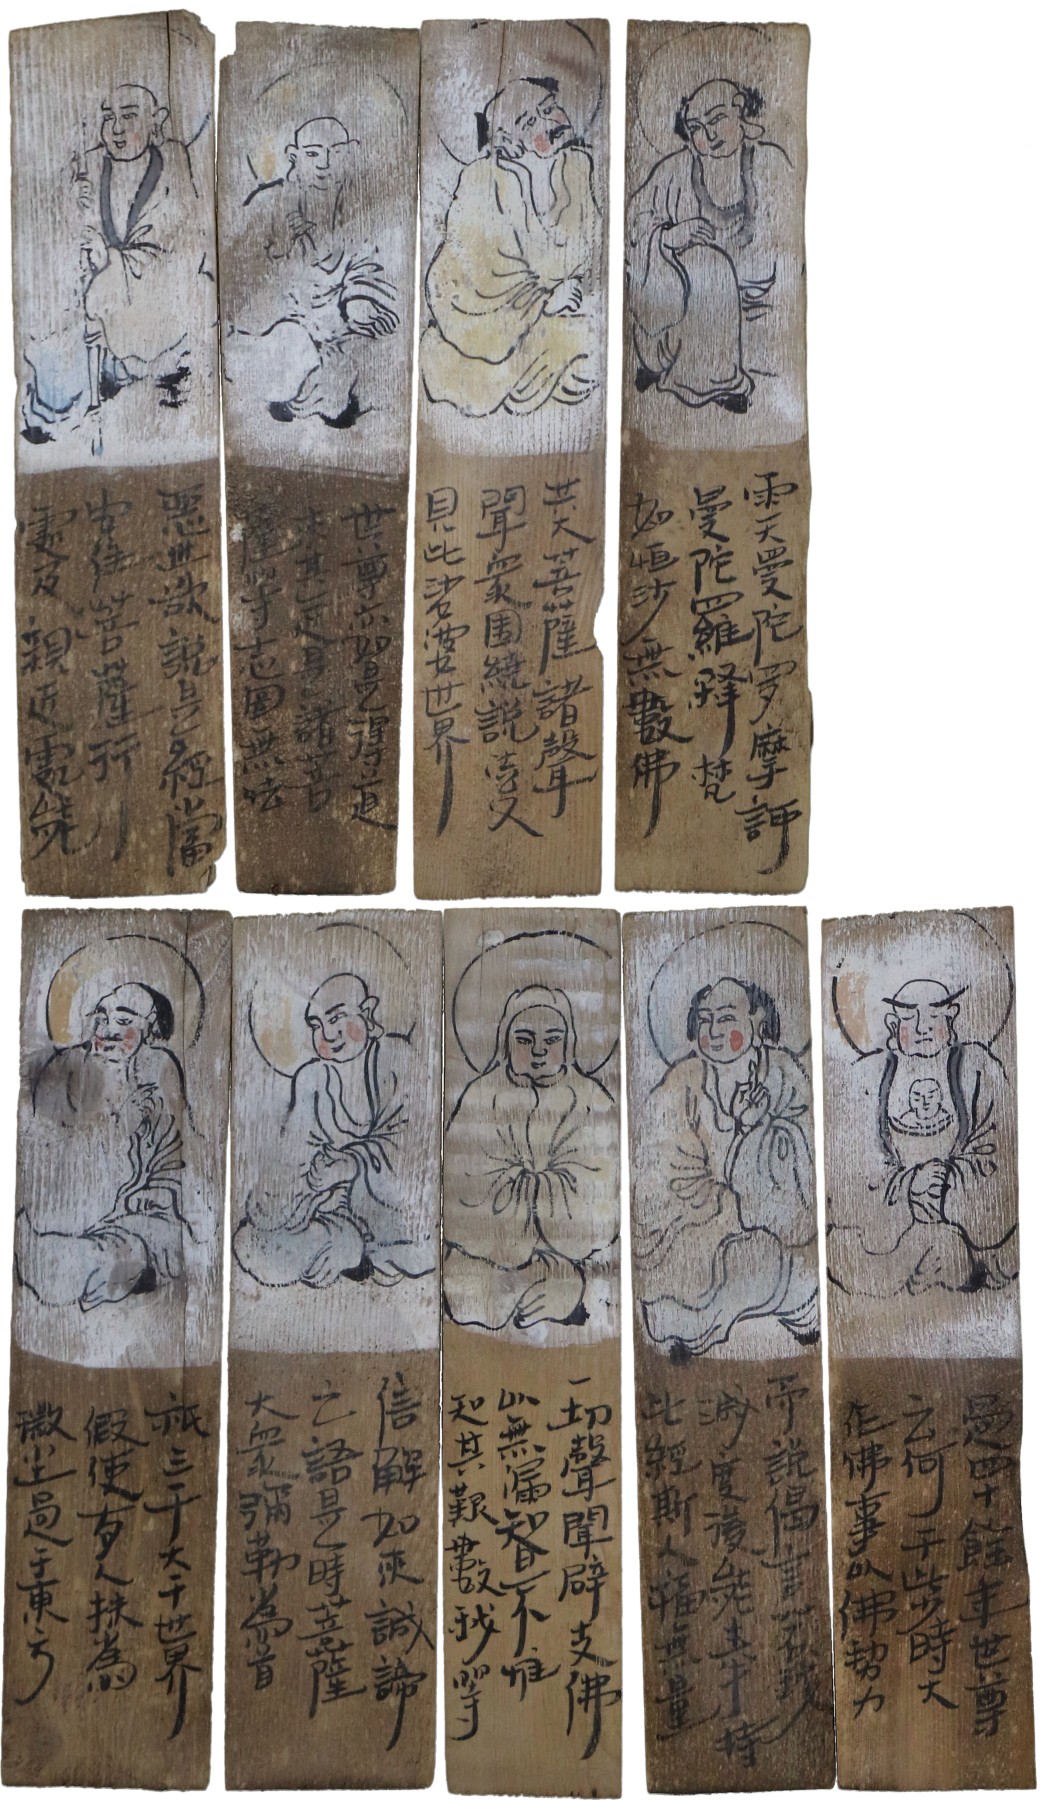 雨天曼陀罗摩訶
曼陀羅釋梵
如恒沙無數佛
其大菩薩諸聲
聞眾圍繞說法又
見此娑婆世界
世尊亦如是得道
其足具諸菩
薩等志固無怯
惡世欲說是經當
安住菩薩行
處及親近處能
四十餘年世尊
云何于此少時大
作佛事以佛勢力
而說偈言若我
滅度後能奉持
此經斯人福無量
一切聲聞辟支佛
以無漏智不惟
知其艱數我等
信解如來誠諦
之語是時菩薩
大眾彌勒為首
祇三千大千世界
假使有人抹為
微塵過于東方